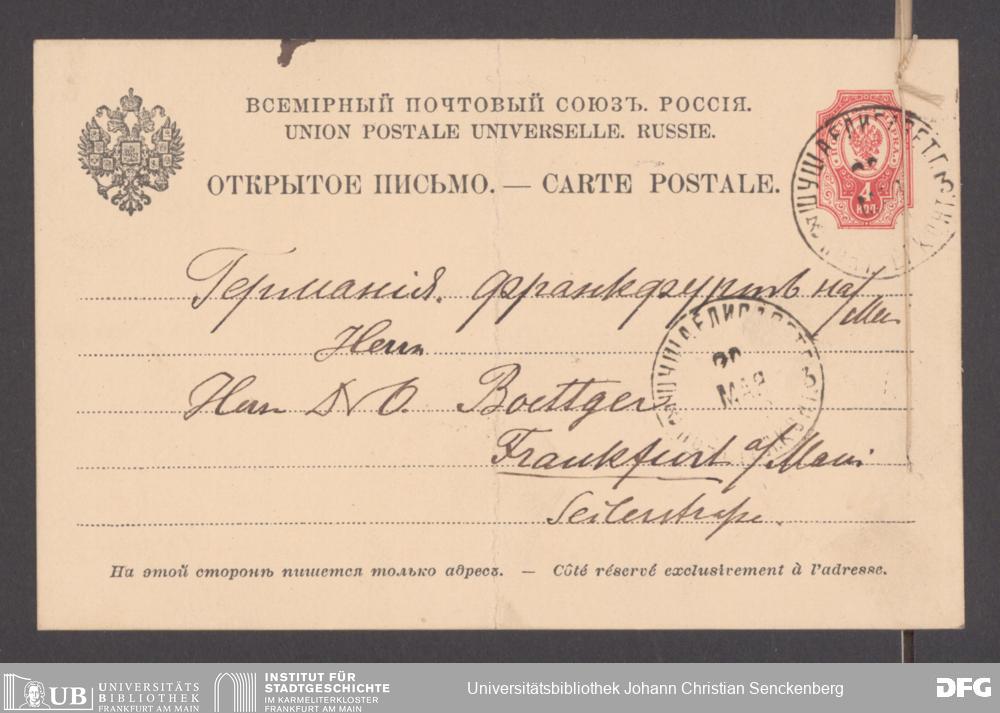 ВСЕМІРНЫЙ ПОЧТОВЫЙ СОЮЗЪ. РОССІЯ.
UNION POSTALE UNIVERSELLE. RUSSIE.
ОТКРЫТОЕ ПИСЬМО. — CARTE POSTALE.
4
КОП.
Германія. Франкфуртъ на/Main
Herrn
Herrn Dr O. Boettger
МАР
Frankfurt a/Main
Seilerstraße.
На этой сторонѣ пишется только адресъ. — Côté réservé exclusivement à l'adresse.
UB UNIVERSITÄTS
BIBLIOTHEK
FRANKFURT AM MAIN
INSTITUT FÜR
STADTGESCHICHTE
IM KARMELITERKLOSTER
FRANKFURT AM MAIN
Universitätsbibliothek Johann Christian Senckenberg
DFG